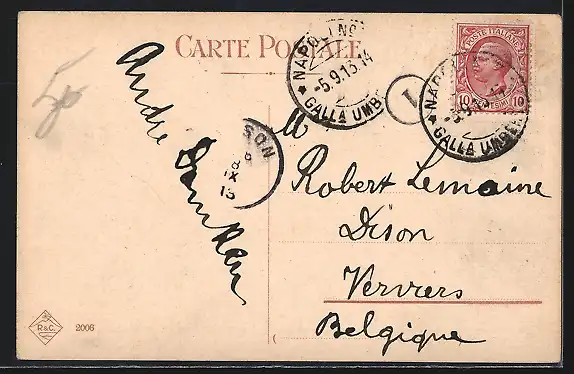 CARTE POSTALE
NAPOLI
-5.9.13.14
GALLA UMBER
1
POSTE ITALIANE
10 CENTESIMI 10
NAPOLI
GALLA UMBER
SON
IX
13
André
M
Robert Lemaine
Dison
Verviers
Belgique
R&C.
2006